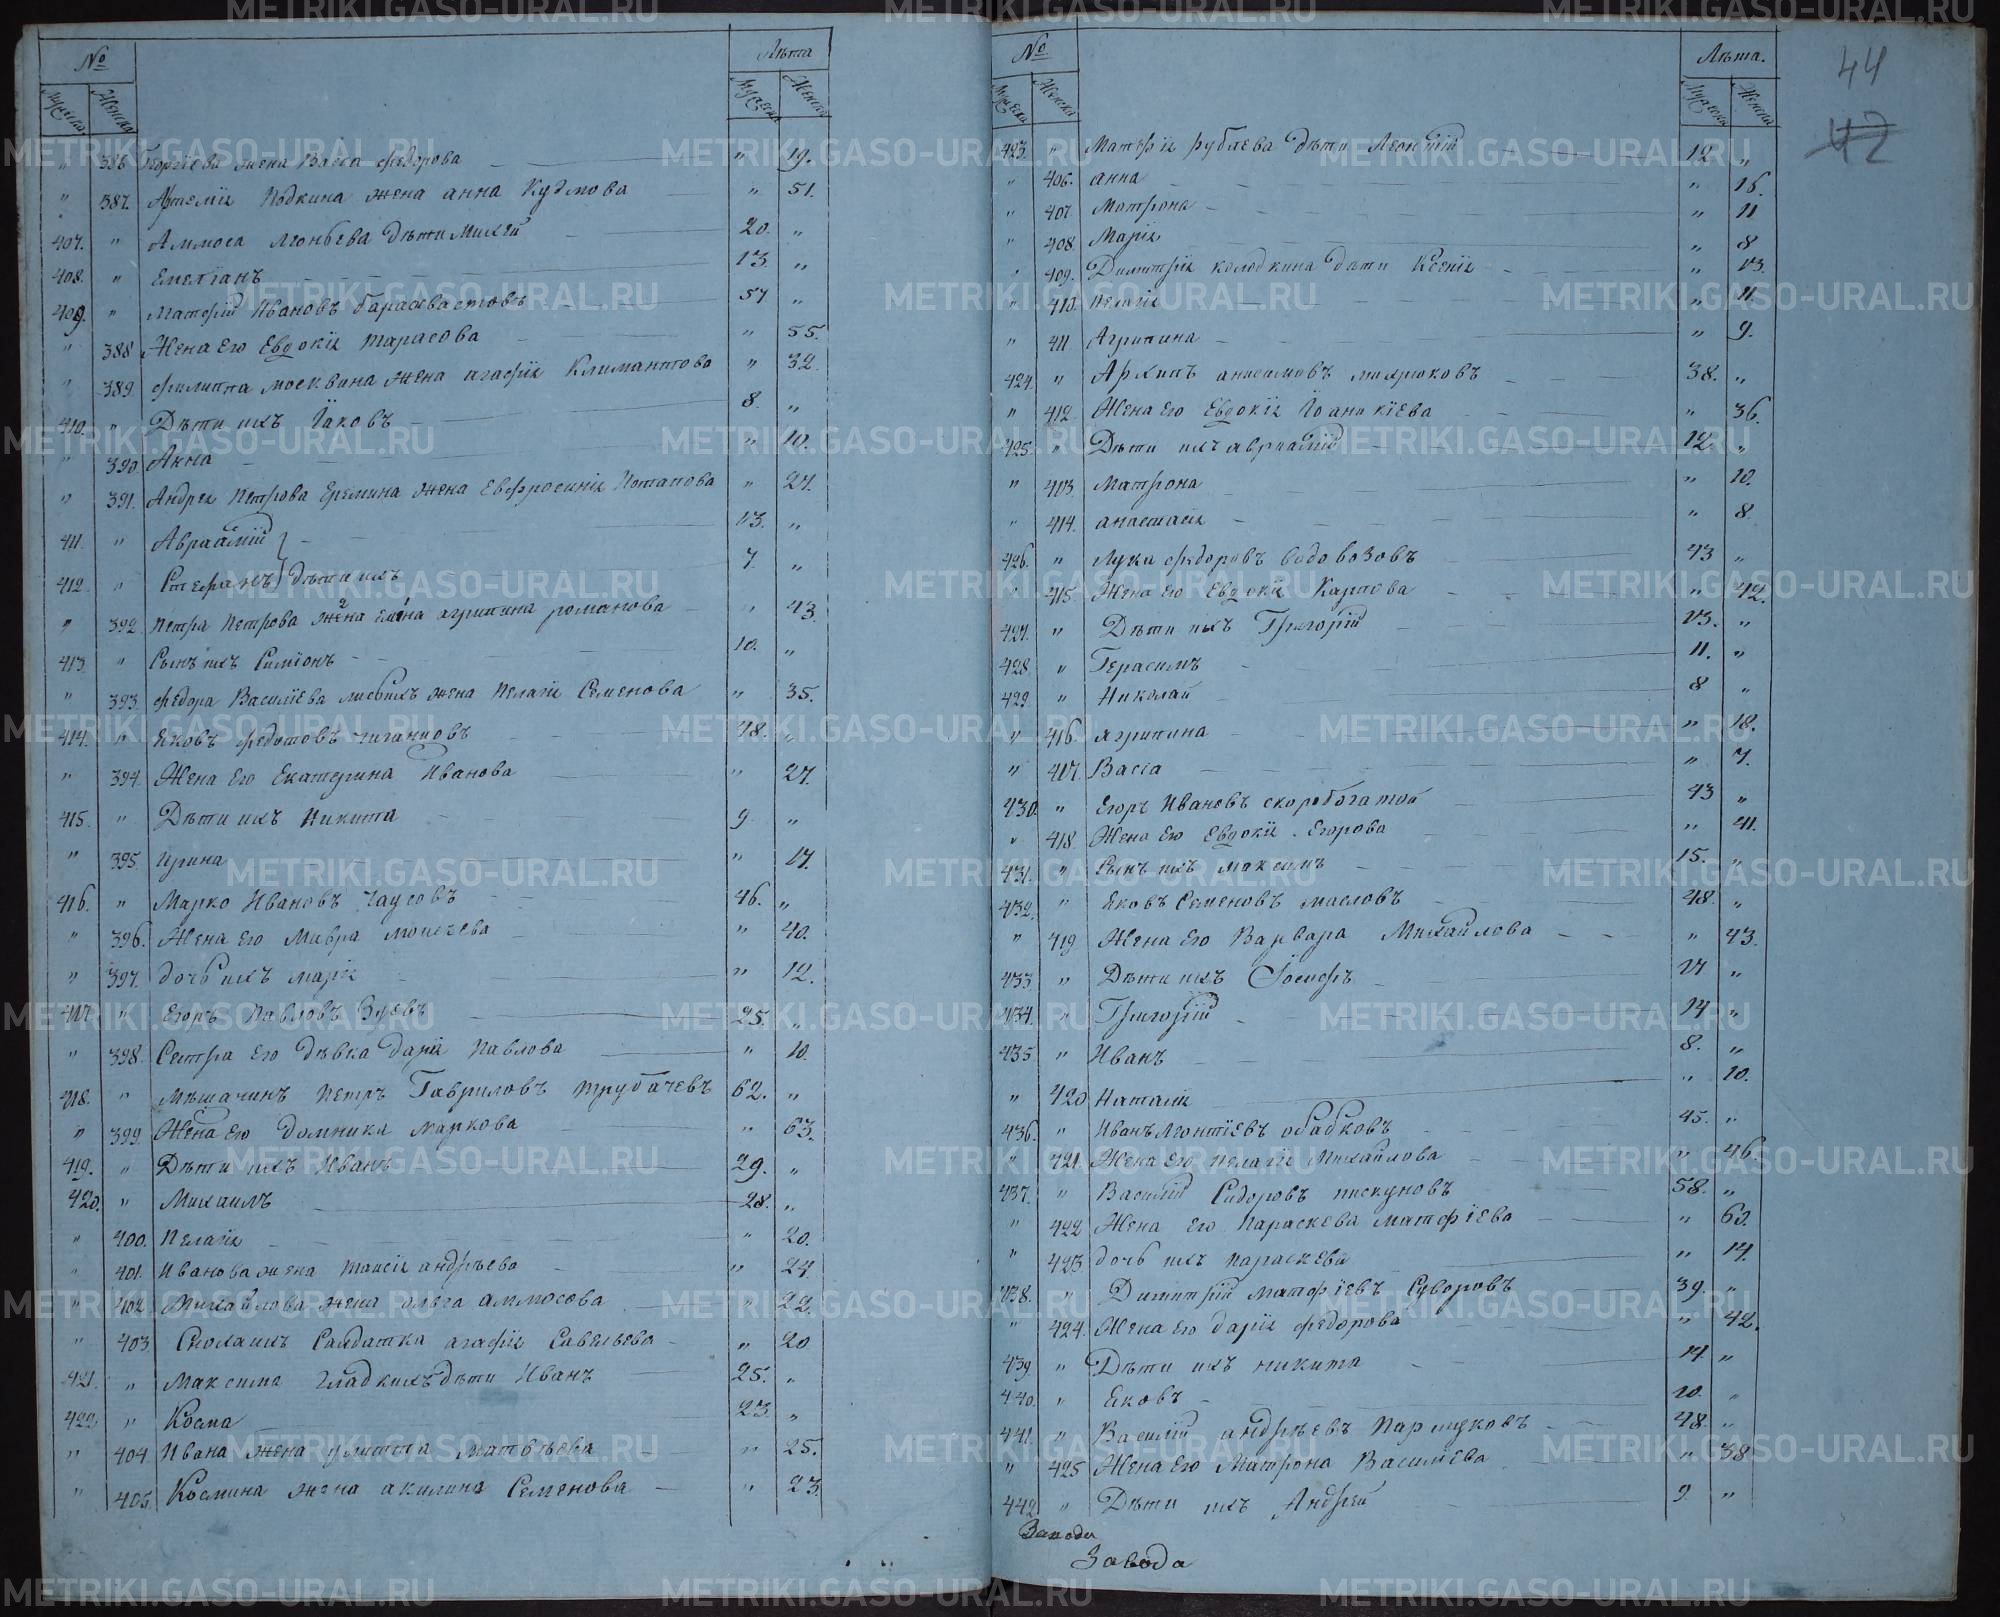 № Лѣта
Мужеска Женска Мужеска Женска
" 386 Георгіева жена Васса федорова " 19.
" 387. Артемія Подкина жена анна Кузмова " 51.
407. " Аммоса Леоньева дѣти Михей 20. "
408. " Емеліанъ 13. "
409. " Матфій Ивановъ 57 "
" 388 Жена Его Евдокія тарасова " 55.
" 389. филипа москвина жена агафія Климантова " 32.
410. " Дѣти ихъ Іаковъ 8. "
" 390 Анна " 10.
" 391. Андрея Петрова Еремина жена Евфросинія Потапова " 27.
411. " Авраамій 13. "
412. " Стефанъ } дѣти ихъ 7. "
" 392 Петра Петрова 2 жена агрипина романова " 43.
413 " Сынъ ихъ Симіонъ 10. "
" 393. федора Василіева жена Пелагія Семенова " 35.
414. " Яковъ федотовъ чиганцовъ 48. "
" 394 Жена Его Екатерина Иванова " 27.
415. " Дѣти ихъ Никита 9 "
" 395 Ирина " 17.
416. " Марко Ивановъ Чаусовъ 46. "
" 396. Жена Его Мавра моисѣева " 40.
" 397. дочь ихъ марія " 12.
417 " Егоръ Павловъ Зуевъ 25. "
" 398. Сестра Его дѣвка Дарія Павлова " 10.
418. " Мѣщанинъ Петръ Гавриловъ трубачевъ 62. "
" 399. Жена Его домника маркова " 63.
419. " Дѣти ихъ Иванъ 29. "
420. " Михаилъ 28. "
" 400. Пелагія " 20.
" 401. Иванова жена таисія андрѣева " 24.
" 402 Михайлова жена ольга аммосова " 22.
" 403. Салдатка агафія Савельева " 20
421. " Максима гладкихъ дѣти Иванъ 25. "
422 " Косма 23 "
" 404 Ивана жена улитта матвѣева " 25.
" 405. Космина жена акилина Семенова " 23.
44
42
№ Лѣта.
Мужеска Женска Мужеска Женска
423. " Матфія рублева дѣти Леонтій 12 "
" 406. анна " 16.
" 407 Матрона " 11
" 408. Марія " 8
" 409. Димитрія колодкина дѣти Ксенія " 13.
" 410. Пелагія " 11.
" 411 Агрипина " 9.
424. " Архипъ анисимовъ михрюковъ 38. "
" 412. Жена Его Евдокія Іоаникіева " 36.
425. " Дѣти ихъ авраамій 12. "
" 413. Матрона " 10.
" 414. анастасія " 8
426. " Лука федоровъ водовозовъ 43 "
" 415. Жена Его Евдокія Карпова " 42.
427. " Дѣти ихъ Григорій 13. "
428 " Герасимъ 11. "
429 " Николай 8 "
" 416. агрипина " 18.
" 417. Васса " 7.
430. " Егоръ Ивановъ скоробогатой 43 "
" 418. Жена Его Евдокія Егорова " 41.
431. " Сынъ ихъ максимъ 15. "
432. " Яковъ Семеновъ масловъ 48. "
" 419 Жена Его Варвара Михайлова " 43.
433. " Дѣти ихъ Іосифъ 17 "
434. " Григорій 14 "
435 " Иванъ 8. "
" 420 Наталія " 10.
436. " Иванъ Леонтіевъ обабковъ 45. "
" 421. Жена Его Пелагія Михайлова " 46.
437. " Василій Сидоровъ пискуновъ 58. "
" 422 Жена Его Параскева матфіева " 60.
" 423 дочь ихъ параскева " 14.
438. " Димитрій матфіевъ Суворовъ 39. "
" 424. Жена Его дарія федорова " 42.
439 " Дѣти ихъ никита 14 "
440. " Яковъ 10. "
441. " Василій андрѣевъ 48. "
" 425 Жена Его Матрона Василіева " 38
442 " Дѣти ихъ Андрей 9 "
Завода
Завода
METRIKI.GASO-URAL.RU